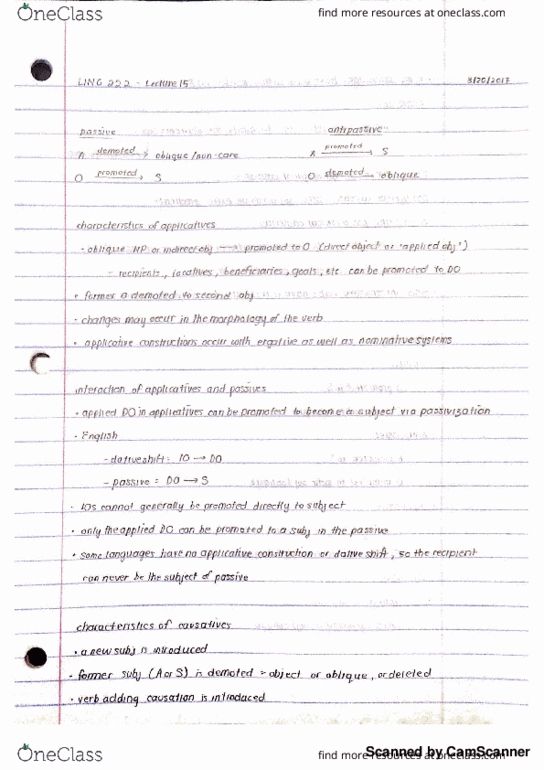 OneClass
find more resources at oneclass.com
LING 222 - Lecture 15 3/20/2017
passive antipassive
A demoted → oblique/non-core A promoted → S
O promoted → S O demoted → oblique
characteristics of applicatives
- oblique NP or indirect obj → promoted to O (direct object or "applied obj")
- recipients, locatives, beneficiaries, goals, etc can be promoted to DO
• former O demoted to second obj
- changes may occur in the morphology of the verb
• applicative constructions occur with ergative as well as nominative systems
interaction of applicatives and passives
• applied DO in applicatives can be promoted to become a subject via passivization
- English
- dative shift: IO → DO
- passive = DO → S
• IOs cannot generally be promoted directly to subject
• only the applied DO can be promoted to a subj in the passive
• some languages have no applicative construction or dative shift, so the recipient
can never be the subject of passive
characteristics of causatives
• a new subj is introduced
• former subj (A or S) is demoted > object or oblique, or deleted
• verb adding causation is introduced
OneClass
find more resources at oneclass.com
Scanned by CamScanner